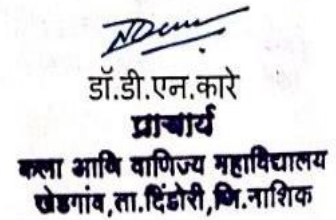 डॉ.डी.एन.कारे
प्राचार्य
कला आणि वाणिज्य महाविद्यालय
खेडगांव,ता.दिंडोरी,जि.नाशिक